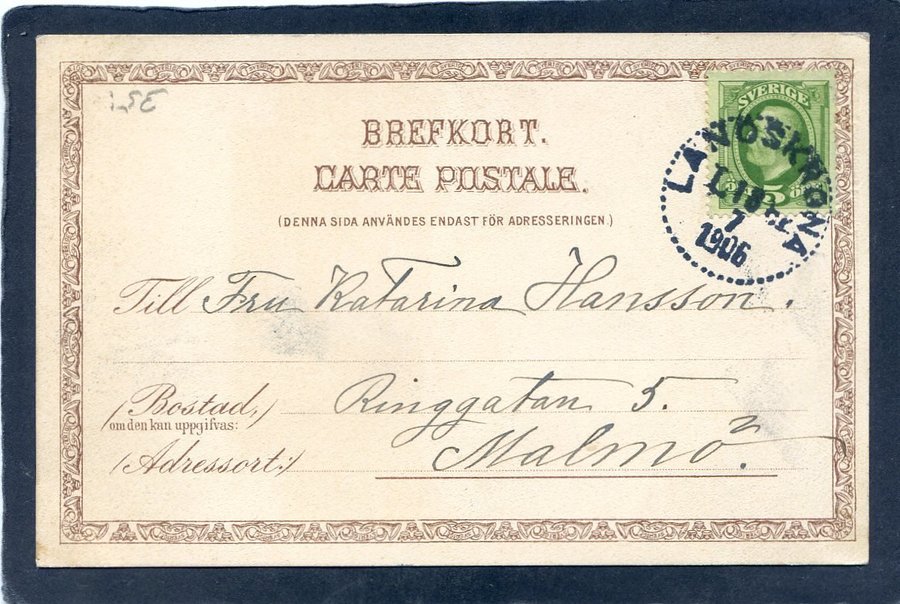 BREFKORT.
CARTE POSTALE.
(DENNA SIDA ANVÄNDES ENDAST FÖR ADRESSERINGEN.)
SVERIGE
5
LANDSKRONA
1
1906
Till Fru Katarina Hansson.
(Bostad,)
om den kan uppgifvas:
Ringgatan 5.
(Adressort:)
Malmö.